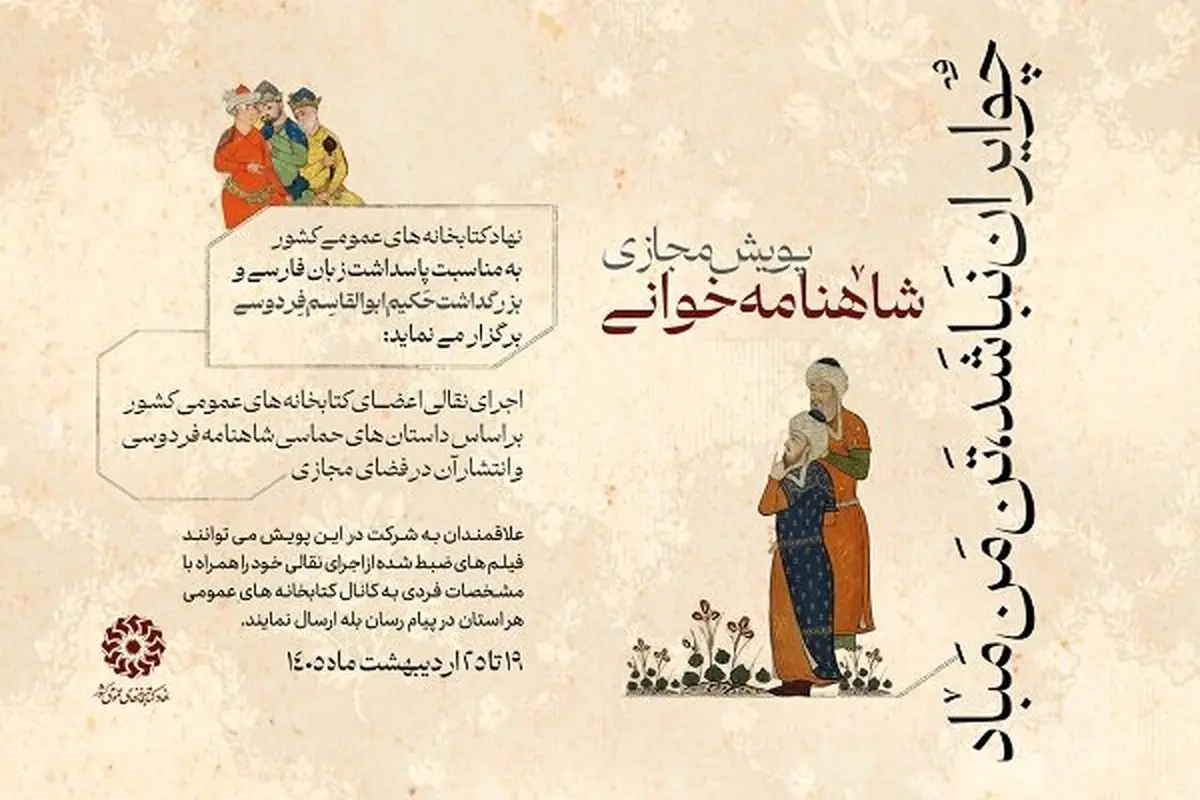 چو ایران نباشد، تن من مباد
پویش مجازی
شاهنامه‌خوانی
نهاد کتابخانه‌های عمومی کشور
به مناسبت پاسداشت زبان فارسی و
بزرگداشت حَکیم ابوالقاسِم فِردوسی
برگزار می نماید:
اجرای نقالی اعضای کتابخانه‌های عمومی کشور
براساس داستان‌های حماسی شاهنامه فردوسی
و انتشار آن در فضای مجازی
علاقمندان به شرکت در این پویش می توانند
فیلم‌های ضبط شده از اجرای نقالی خود را همراه با
مشخصات فردی به کانال کتابخانه های عمومی
هر استان در پیام رسان بله ارسال نمایند.
۱۹ تا ۲۵ اردیبهشت ماه ۱۴۰۵
نهاد کتابخانه‌های عمومی کشور